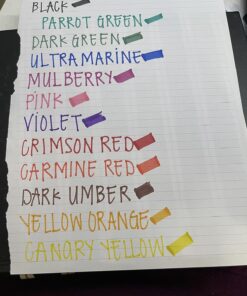 BLACK
PARROT GREEN
DARK GREEN
ULTRAMARINE
MULBERRY
PINK
VIOLET
CRIMSON RED
CARMINE RED
DARK UMBER
YELLOW ORANGE
CANARY YELLOW